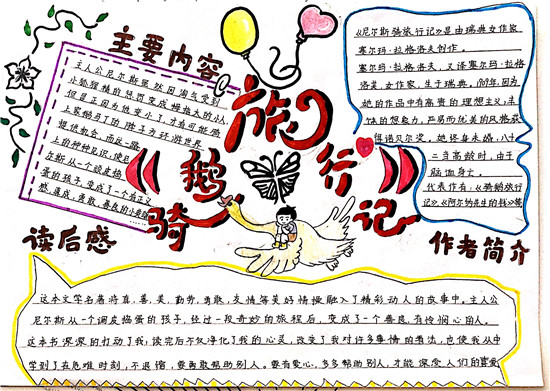 主要内容
主人公尼尔斯虽然因淘气受到
小狐狸精的惩罚变成拇指大的小人,
但是正因为他变小了,才有可能做
上家鹅的脖子为环游世界
提供机会,而这一路
上的种种见识,使尼
尔斯从一个顽皮捣
蛋的孩子,变成了一个有正义
善良、勇敢、善良的小男孩
《骑鹅旅行记》
《尼尔斯骑旅行记》是由瑞典女作家
塞尔玛·拉格洛夫创作。
塞尔玛·拉格洛夫,又译塞尔玛·拉格
洛芙,女作家,生于瑞典。1909年,因为
她的作品中有高贵的理想主义,丰
富的想象力,平易而优美的风格获
得诺贝尔奖。她终身未婚,八十
二岁高龄时,由于
脑血身亡。
代表作有:《骑鹅旅行
记》、《阿尔纳先生的钱》等
作者简介
读后感
这本文学名著将真、善、美、勤劳、勇敢、友情等美好情操融入了精彩动人的故事中。主人公
尼尔斯从一个调皮捣蛋的孩子,经过一段奇妙的旅程后,变成了一个善良、有怜悯心的人。
这本书深深的打动了我;读完后不仅净化了我的心灵,改变了我对许多事情的看法,也使我从中
学到了在危难时刻,不退缩,要勇敢帮助别人。要有爱心,多多帮助别人,才能深受人们的喜爱